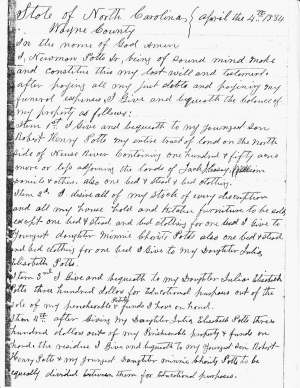 State of North Carolina, } April the 4th 1884
Wayne County
In the name of God Amen
I, Newman Potts Sr. being of sound mind make
and constitute this my last will and testament
after paying all my just debts and paying my
funeral expenses, I Give and bequeath the balance of
my property as follows:
Item 1st I Give and bequeath to my youngest son
Robert Henry Potts my entire tract of land on the North
side of Neuse River Containing one hundred & fifty acres
more or less adjoining the lands of Jack
& others. Also one bed & stead & bed clothing.
Item 2nd I desire all of my stock of every description
and all my house hold and kitchen furniture to be sold
except one bed & stead and bed clothing for one bed I give to
youngest daughter Minnie Charity Potts also one bed & stead
and bed clothing for one bed I Give to my Daughter Julia
Elizabeth Potts.
Item 3rd I Give and bequeath to my Daughter Julia Elizabeth
Potts three hundred dollars for Educational purposes out of the
sale of my perishable property & funds I have on hand.
Item 4th after Giving my Daughter Julia Elizabeth Potts three
hundred dollars out of my Perishable property & funds on
hand the residue I Give and bequeath to my youngest son Robert
Henry Potts & my youngest Daughter Minnie Charity Potts to be
equally divided between them for Educational purposes.